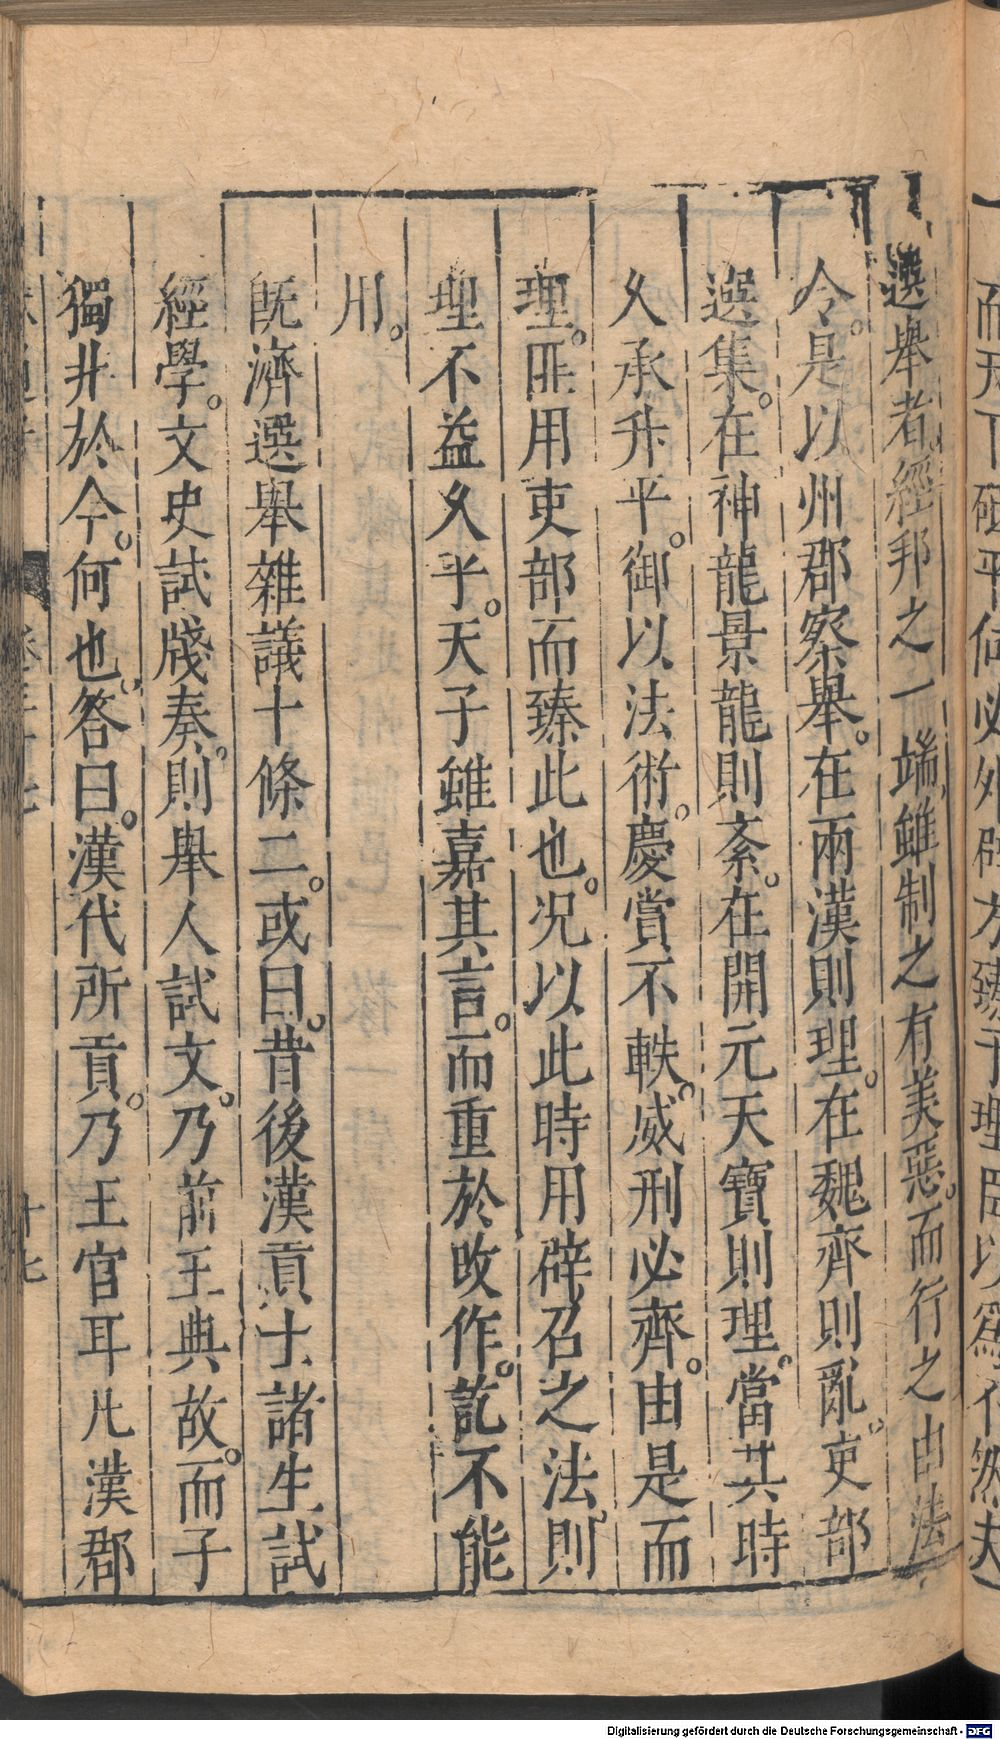 選舉者。經邦之一端。雖制之有美惡。而行之由法
令。是以州郡察舉。在兩漢則理。在魏齊則亂。吏部
選集。在神龍景龍則紊。在開元天寶則理。當其時
久承升平。御以法術。慶賞不軼。威刑必齊。由是而
理。匪用吏部而臻此也。况以此時用辟召之法。則
理不益久乎。天子雖嘉其言。而重於改作。訖不能
用。
旣濟選舉雜議十條二。或曰。昔後漢貢士。諸生試
經學。文史試牋奏。則舉人試文。乃前王典故。而子
獨非於今。何也。答曰。漢代所貢。乃王官耳。凡漢郡
十七
Digitalisierung gefördert durch die Deutsche Forschungsgemeinschaft - DFG